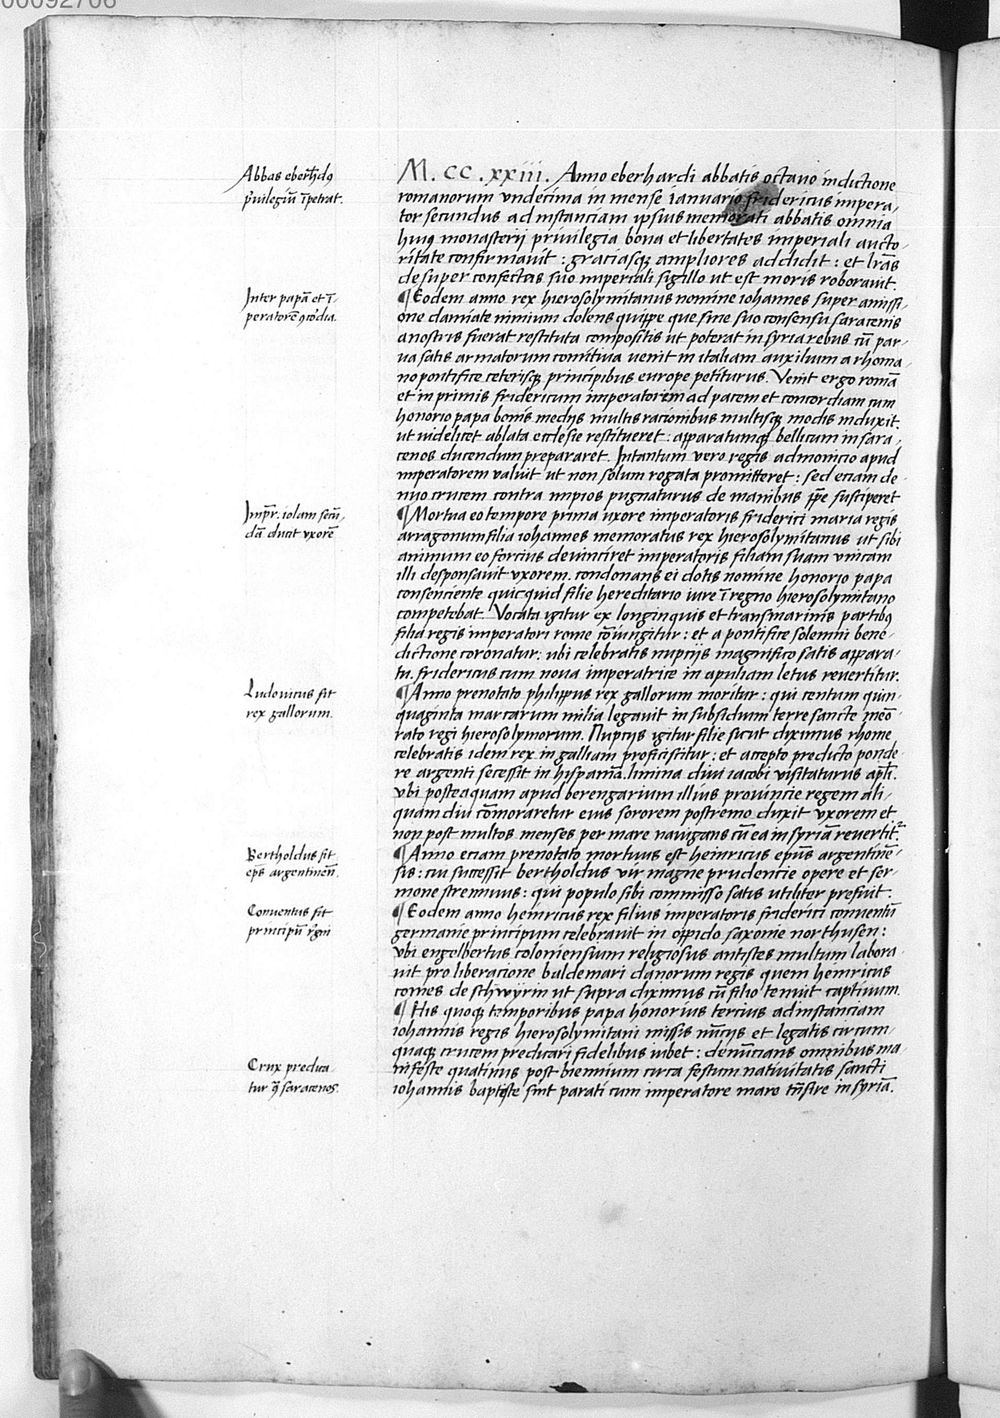 00092706
Abbas eberh̄dꝰ
p̄uilegiū īpetrat.
M.CC.xxiii. Anno eberhardi abbatis octauo indictione
romanorum vndecima in mense ianuario fridericus impera-
tor secundus ad instanciam ipsius memorati abbatis omnia
huiꝰ monasterij priuilegia bona et libertates imperiali aucto-
ritate confirmauit : graciasqꝫ ampliores addidit : et lr̄as
desuper confectas suo imperiali sigillo ut est moris roborauit.
Inter papā et ī-
peratorē ꝯcōdia.
¶Eodem anno rex hierosolymitanus nomine iohannes super amissi-
one damiate nimium dolens quippe que sine suo consensu saracenis
a nostris fuerat restituta compositis ut poterat in syria rebus cū par-
ua satis armatorum comitiua venit in italiam auxilium a rhoma-
no pontifice ceterisqꝫ principibus europe petiturus. Venit ergo romā
et in primis fridericum imperatorem ad pacem et concordiam cum
honorio papa bonis medijs multis racionibus multisqꝫ modis induxit.
ut videlicet ablata ecclesie restitueret : apparatumqꝫ bellicum in sara-
cenos ducendum prepararet. Intantum vero regis admonicio apud
imperatorem valuit ut non solum rogata promitteret : sed eciam de-
nuo crucem contra impios pugnaturus de manibus pp̄e susciperet
Imp̄r. iolam secū-
dā ducit vxorē
¶Mortua eo tempore prima uxore imperatoris friderici maria regis
arragonum filia iohannes memoratus rex hierosolymitanus ut sibi
animum eo forcius deuinciret imperatoris filiam suam vnicam
illi desponsauit vxorem. condonans ei dotis nomine honorio papa
consenciente quicquid filie hereditario iure ī regno hierosolymitano
competebat. Vocata igitur ex longinquis et transmarinis partibꝰ
filia regis imperatori rome cōiungitur : et a pontifice solemni bene-
dictione coronatur: ubi celebratis nuptijs magnifico satis appara-
tu. fridericus cum noua imperatrice in apuliam letus reuertitur.
Ludouicus fit
rex gallorum.
¶Anno prenotato philippus rex gallorum moritur : qui centum quin-
quaginta marcarum milia legauit in subsidium terre sancte meō-
rato regi hierosolymorum. Nuptijs igitur filie sicut diximus rhome
celebratis idem rex in galliam proficiscitur : et accepto predicto ponde
re argenti secessit in hispaniā. limina diui iacobi visitaturus apl̄i.
vbi posteaquam apud berengarium illius prouincie regem ali-
quam diu cōmoraretur eius sororem postremo duxit vxorem et
non post multos menses per mare nauigans cū ea in syriā reuertit̄.
Bertholdus fit
ep̄s argentineñ.
¶Anno eciam prenotato mortuus est heinricus ep̄us argentinē-
sis: cui successit bertholdus vir magne prudencie opere et ser-
mone strennuus : qui populo sibi commisso satis utiliter prefuit.
Conuentus fit
principū
¶Eodem anno heinricus rex filius imperatoris friderici conuentū
germanie principum celebrauit in oppido saxonie northusen :
vbi engelbertus coloniensium religiosus antistes multum labora-
uit pro liberacione baldemari danorum regis quem heinricus
comes de schwyrin ut supra diximus cū filio tenuit captiuum.
¶His quoqꝫ temporibus papa honorius tercius ad instanciam
iohannis regis hierosolymitani missis nūcijs et legatis circum-
quaqꝫ crucem predicari fidelibus iubet : denūcians omnibus ma-
Crux predica-
tur ꝯ̄ saracenos.
nifeste quatinus post biennium circa festum natiuitatis sancti
iohannis baptiste sint parati cum imperatore mare trāsire in syriā.